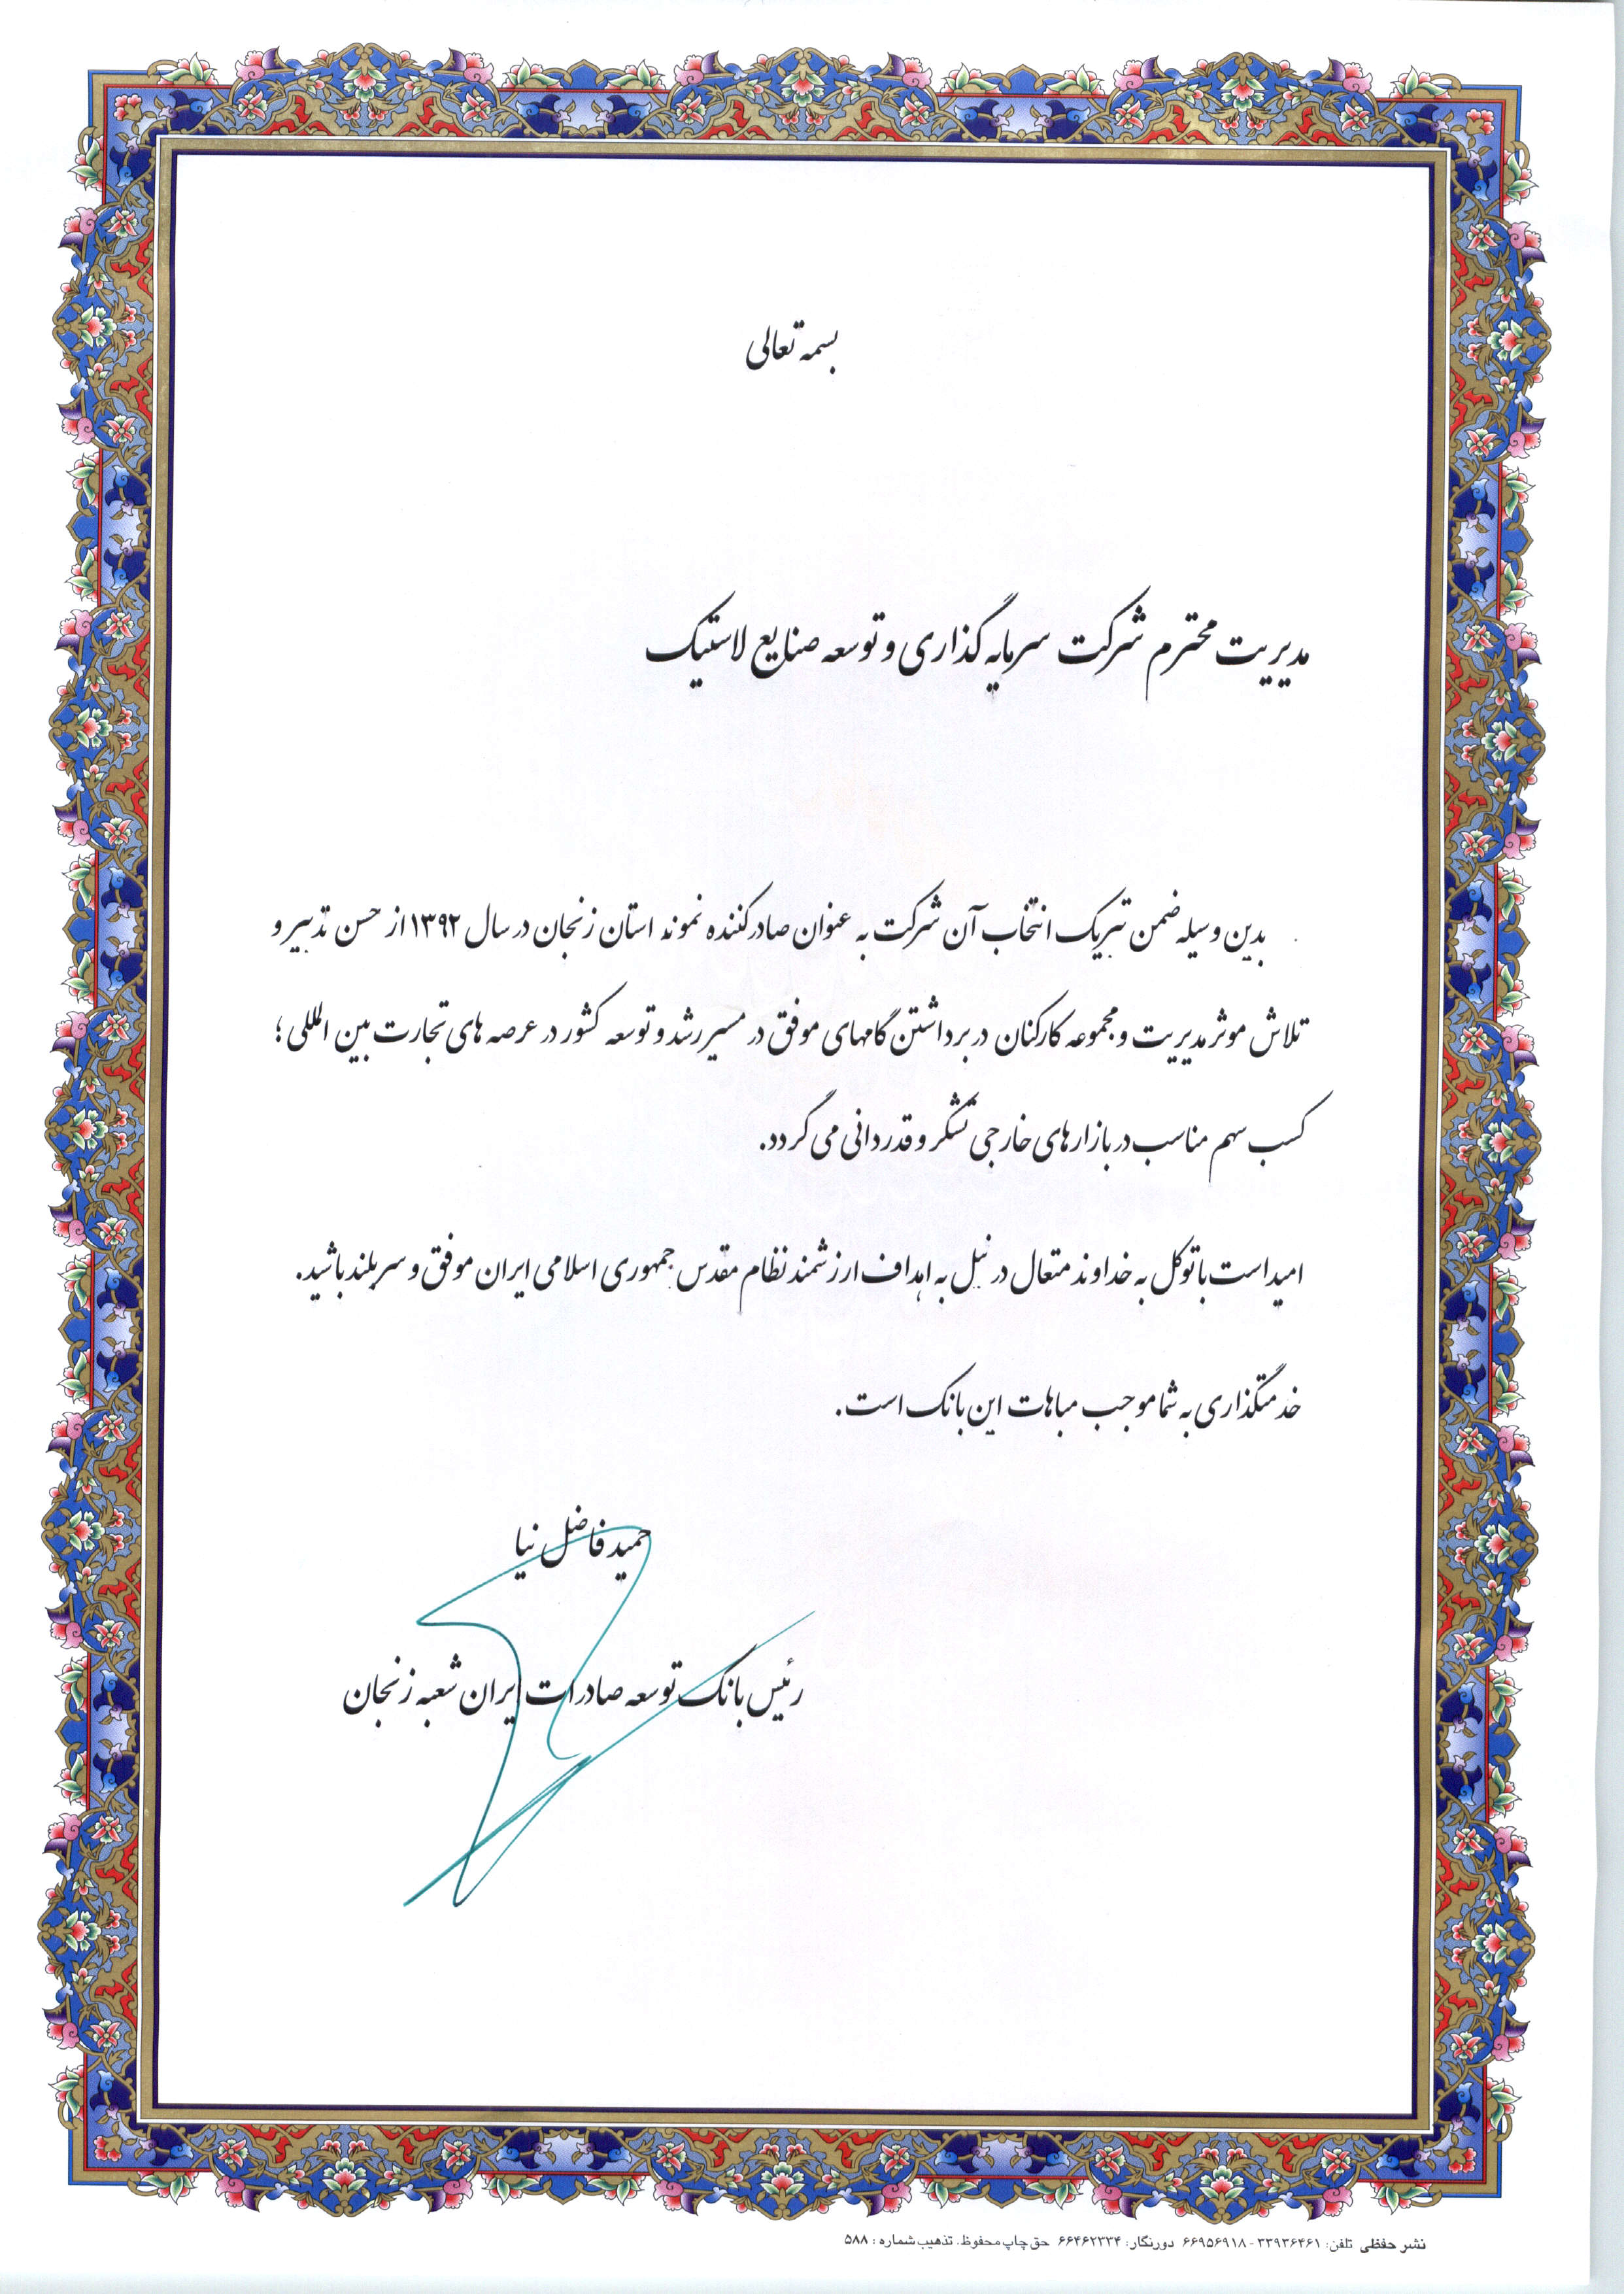 بسمه تعالی
مدیریت محترم شرکت سرمایه گذاری و توسعه صنایع لاستیک
بدین وسیله ضمن تبریک انتخاب آن شرکت به عنوان صادرکننده نمونه استان زنجان در سال ۱۳۹۲ از حسن تدبیر و
تلاش موثر مدیریت و مجموعه کارکنان در برداشتن گامهای موفق در مسیر رشد و توسعه کشور در عرصه های تجارت بین المللی ؛
کسب سهم مناسب در بازارهای خارجی تشکر و قدردانی می گردد.
امید است با توکل به خداوند متعال در نیل به اهداف ارزشمند نظام مقدس جمهوری اسلامی ایران موفق و سربلند باشید.
خدمتگذاری به شما موجب مباهات این بانک است.
حمید فاضل نیا
رئیس بانک توسعه صادرات ایران شعبه زنجان
نشر حفظی تلفن: ۳۳۹۳۶۴۶۱ - ۶۶۹۵۶۹۱۸ دورنگار: ۶۶۴۶۲۳۳۴ حق چاپ محفوظ. تذهیب شماره : ۵۸۸